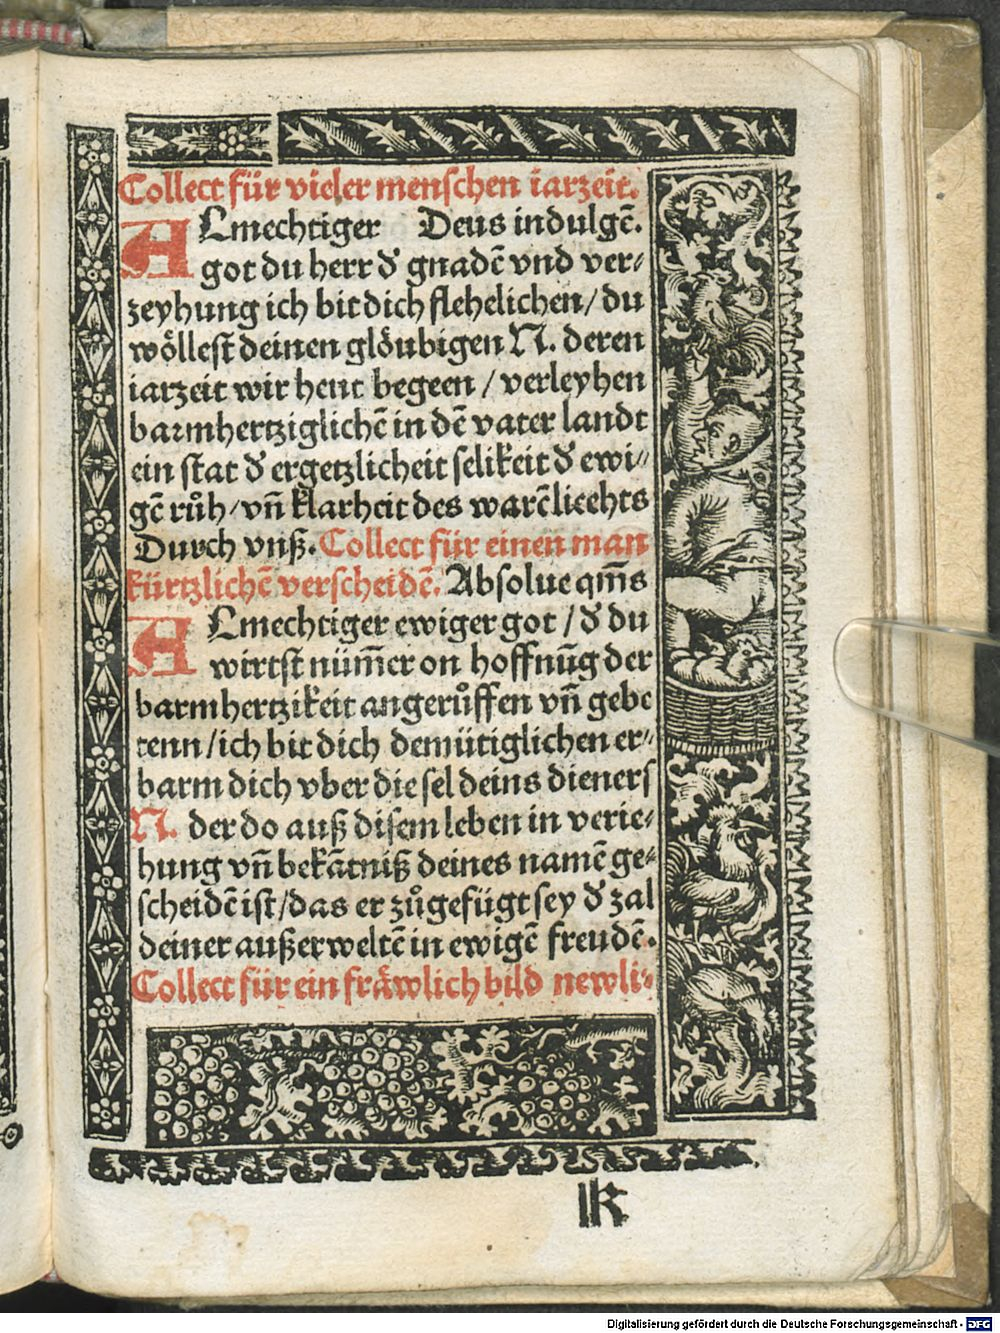 Collect für vieler menschen iarzeit.
ALmechtiger Deus indulgē.
got du herr d̕ gnadē vnd ver⸗
zeyhung ich bit dich flehelichen/ du
wöllest deinen glöubigen N. deren
iarzeit wir heut begeen / verleyhen
barmhertziglichē in dē vater landt
ein stat d̕ ergetzlicheit selikeit d̕ ewi⸗
gē růh/ vn̄ klarheit des warēlicehts
Durch vnß. Collect für einen man
kürtzlichē verscheidē. Absolue qm̄s
ALmechtiger ewiger got / d̕ du
wirtst nüm̄er on hoffnūg der
barmhertzikeit angerůffen vn̄ gebe
tenn/ ich bit dich demütiglichen er⸗
barm dich vber die sel deins dieners
N. der do auß disem leben in verie⸗
hung vn̄ bekātniß deines namē ge⸗
scheidē ist/ das er zůgefügt sey d̕ zal
deiner außerweltē in ewigē freudē.
Collect für ein fräwlich bild newli⸗
k
Digitalisierung gefördert durch die Deutsche Forschungsgemeinschaft - DFG